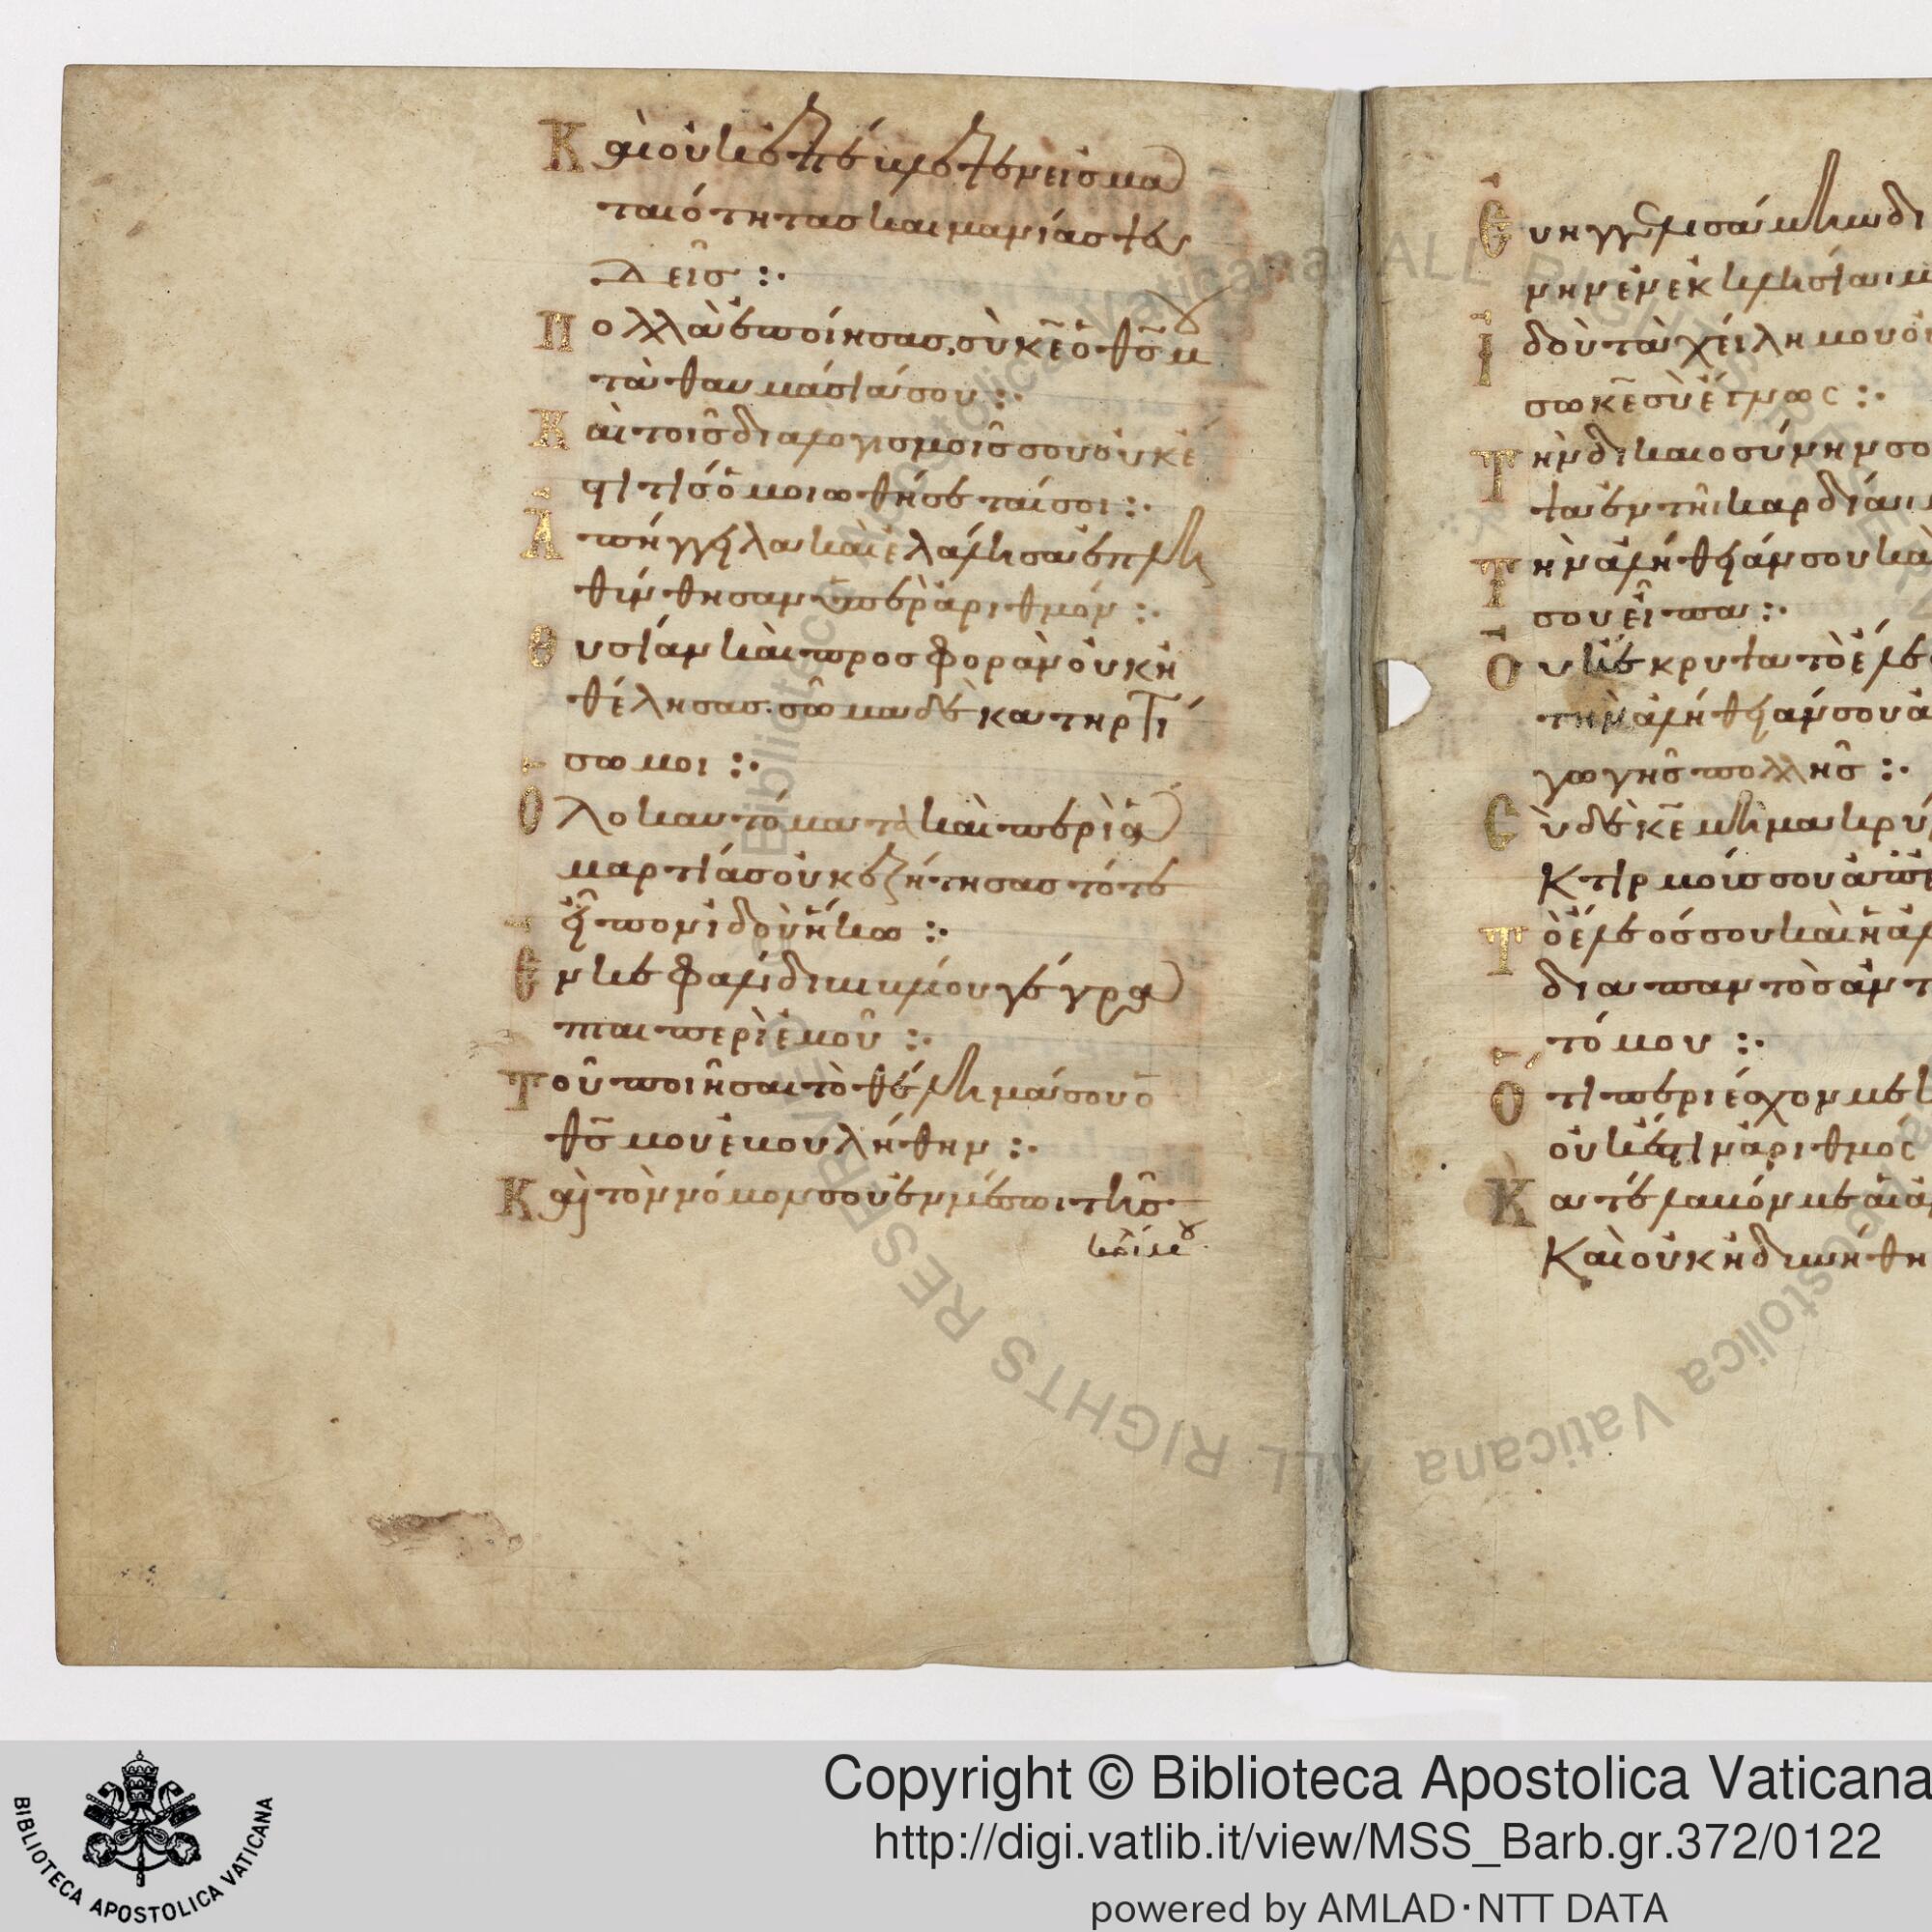 Καὶ οὐκ ἐπέβλεψεν εἰς μα
ταιότητας καὶ μανίας ψευ
δεῖς :·
Πολλὰ ἐποίησας σὺ κε ὁ θς μου
τὰ θαυμάσιά σου :·
Καὶ τοῖς διαλογισμοῖς σου οὐκ ἔ
στι τίς ὁμοιωθήσεταί σοι :·
Ἀπήγγειλα καὶ ἐλάλησα ἐπλη
θύνθησαν ὑπὲρ ἀριθμόν :·
Θυσίαν καὶ προσφορὰν οὐκ ἠ
θέλησας· σῶμα δὲ κατηρτί
σω μοι :·
Ὁλοκαυτόματα καὶ περὶ ἁ
μαρτίας οὐκ ἐζήτησας τότε
εἶπον ἰδοὺ ἥκω :·
Ἐν κεφαλίδι βιβλίου γέγρα
πται περὶ ἐμοῦ :·
Τοῦ ποιῆσαι τὸ θέλημά σου ὁ
θς μου ἐβουλήθην :·
Καὶ τὸν νόμον σου ἐν μέσωι τῆς
κοιλί μου
Εὐηγγελισάμην δι
νην ἐν ἐκκλησίαι μ
Ἰδοὺ τὰ χείλη μου οὐ
σω κε σὺ ἔγνως :·
Τὴν δικαιοσύνην σο
ψα ἐν τῆι καρδίαι
Τὴν ἀλήθειάν σου καὶ
σου εἶπα :·
Οὐκ ἔκρυψα τὸ ἔλεο
τὴν ἀλήθειάν σου ἀ
γωγῆς πολλῆς :·
Σὺ δὲ κε μὴ μακρύ
κτιρμούς σου ἀπ ἐ
Τὸ ἔλεός σου καὶ ἡ ἀλ
διαπαντὸς ἀντ
τό μου :·
Ὅτι περιέσχον με κ
οὐκ ἔστιν ἀριθμός
Κατέλαβόν με αἱ ἀ
Καὶ οὐκ ἠδυνήθη
Biblioteca Apostolica Vaticana ALL RIGHTS RESERVED
BIBLIOTECA APOSTOLICA VATICANA
Copyright © Biblioteca Apostolica Vaticana
http://digi.vatlib.it/view/MSS_Barb.gr.372/0122
powered by AMLAD·NTT DATA